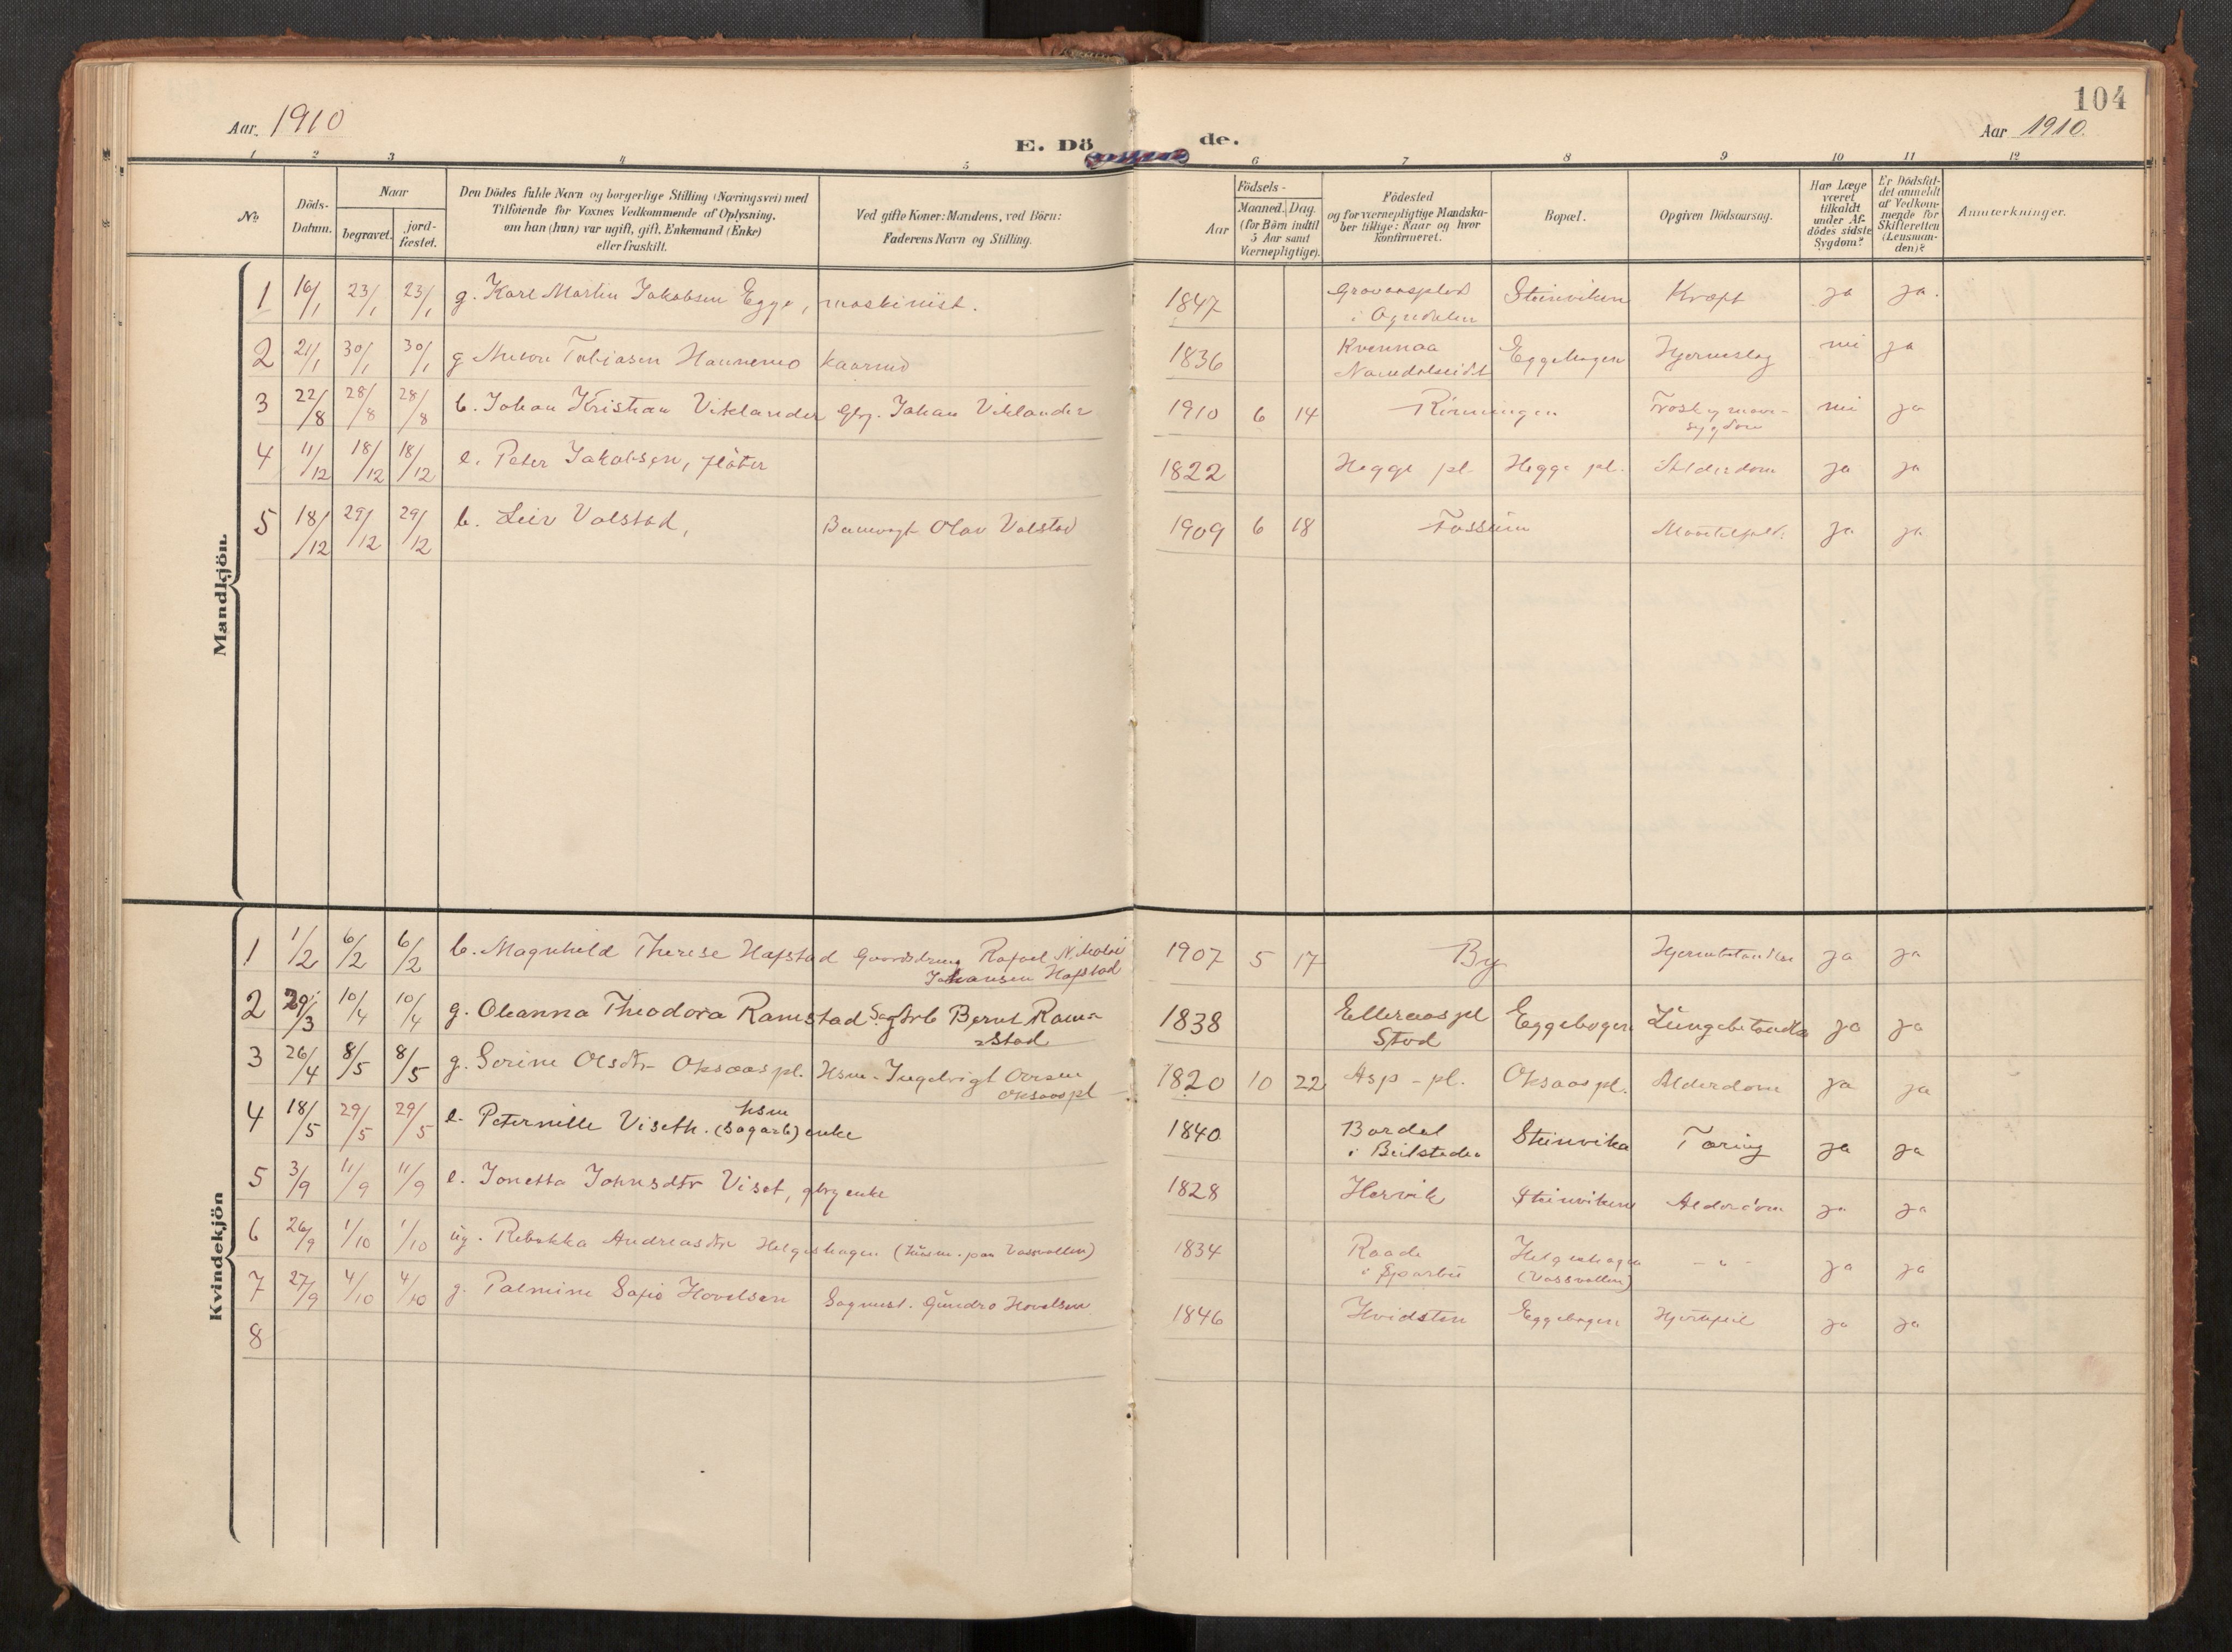 104
Aar. 1910
E. Dö de.
Aar 1910.
1 2 3 4 5 6 7 8 9 10 11 12
No
Döds-
Datum.
Naar
begravet.
jord-
fæstet.
Den Dödes fulde Navn og borgerlige Stilling (Næringsvei) med
Tilföiende for Voxnes Vedkommende af Oplysning,
om han (hun) var ugift, gift, Enkemand (Enke)
eller fraskilt.
Ved gifte Koner: Mandens, ved Börn:
Faderens Navn og Stilling.
Födsels-
Aar
Maaned. Dag.
(for Börn indtil
5 Aar samt
Værnepligtige).
Födested
og for værnepligtige Mandska-
ber tillige: Naar og hvor
konfirmeret.
Bopæl.
Opgiven Dödsaarsag.
Har Læge
været
tilkaldt
under Af-
dödes sidste
Sygdom?
Er Dödsfal-
det anmeldt
af Vedkom-
mende for
Skifteretten
(Lensman-
den)?
Anmærkninger.
Mandkjön.
1 16/1 23/1 23/1 g. Karl Martin Jakobsen Egge, maskinist. 1847 i Ogndalen Steinviken Kræft ja ja.
2 21/1 30/1 30/1 g Tobiasen Hannemo kaarmd 1836 Kvennaa Namdalseidet Eggebogen Hjerneslag nei ja
3 22/8 28/8 28/8 b. Johan Kristian Viklander Gbr. Johan Viklander 1910 6 14 Rönningen sygdom nei ja
4 11/12 18/12 18/12 e. Peter Jakobsen, fløter 1822 Hegge pl. Hegge pl. Alderdom ja ja
5 18/12 29/12 29/12 b. Leiv Valstad, Banevogt Olav Valstad 1909 6 18 Fossum ja ja
Kvindekjön
1 1/2 6/2 6/2 b. Magnhild Therese Hafstad Gaardsdreng Rafael Nikolai
Johansen Hafstad 1907 5 17 By ja ja
2 29/3 10/4 10/4 g. Oleanna Theodora Ramstad Sagarb Bernt Ram-
stad 1838 Elleraas pl Stod Eggebogen Lungebetændlse ja ja
3 26/4 8/5 8/5 g. Serine Olsdtr Oksaas pl. Hsm. Ingebrigt
Oksaas pl 1820 10 22 Asp-pl. Oksaas pl. Alderdom ja ja
4 18/5 29/5 29/5 e. Peternille Viseth. hsm (sagarb) enke 1840 Bardal i Beitstaden Steinvika Tæring ja ja
5 3/9 11/9 11/9 e. Jonetta Johnsdtr Viset, gbrgenke 1828 Hervik Steinviken Alderdom ja ja
6 26/9 1/10 1/10 ug. Rebekka Andreasdtr Helgeshagen (husm. paa Vassvollen) 1834 i Sparbu Helgeshagen (Vassvollen) - " - ja ja
7 27/9 4/10 4/10 g. Palmine Sofie Hovelsen Sagmest. Gundro Hovelsen 1846 Hvidsten Eggebogen Hjertefeil ja ja
8